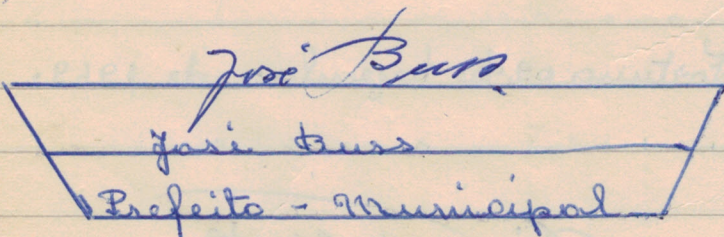 José Buss
José Buss
Prefeito - Municipal